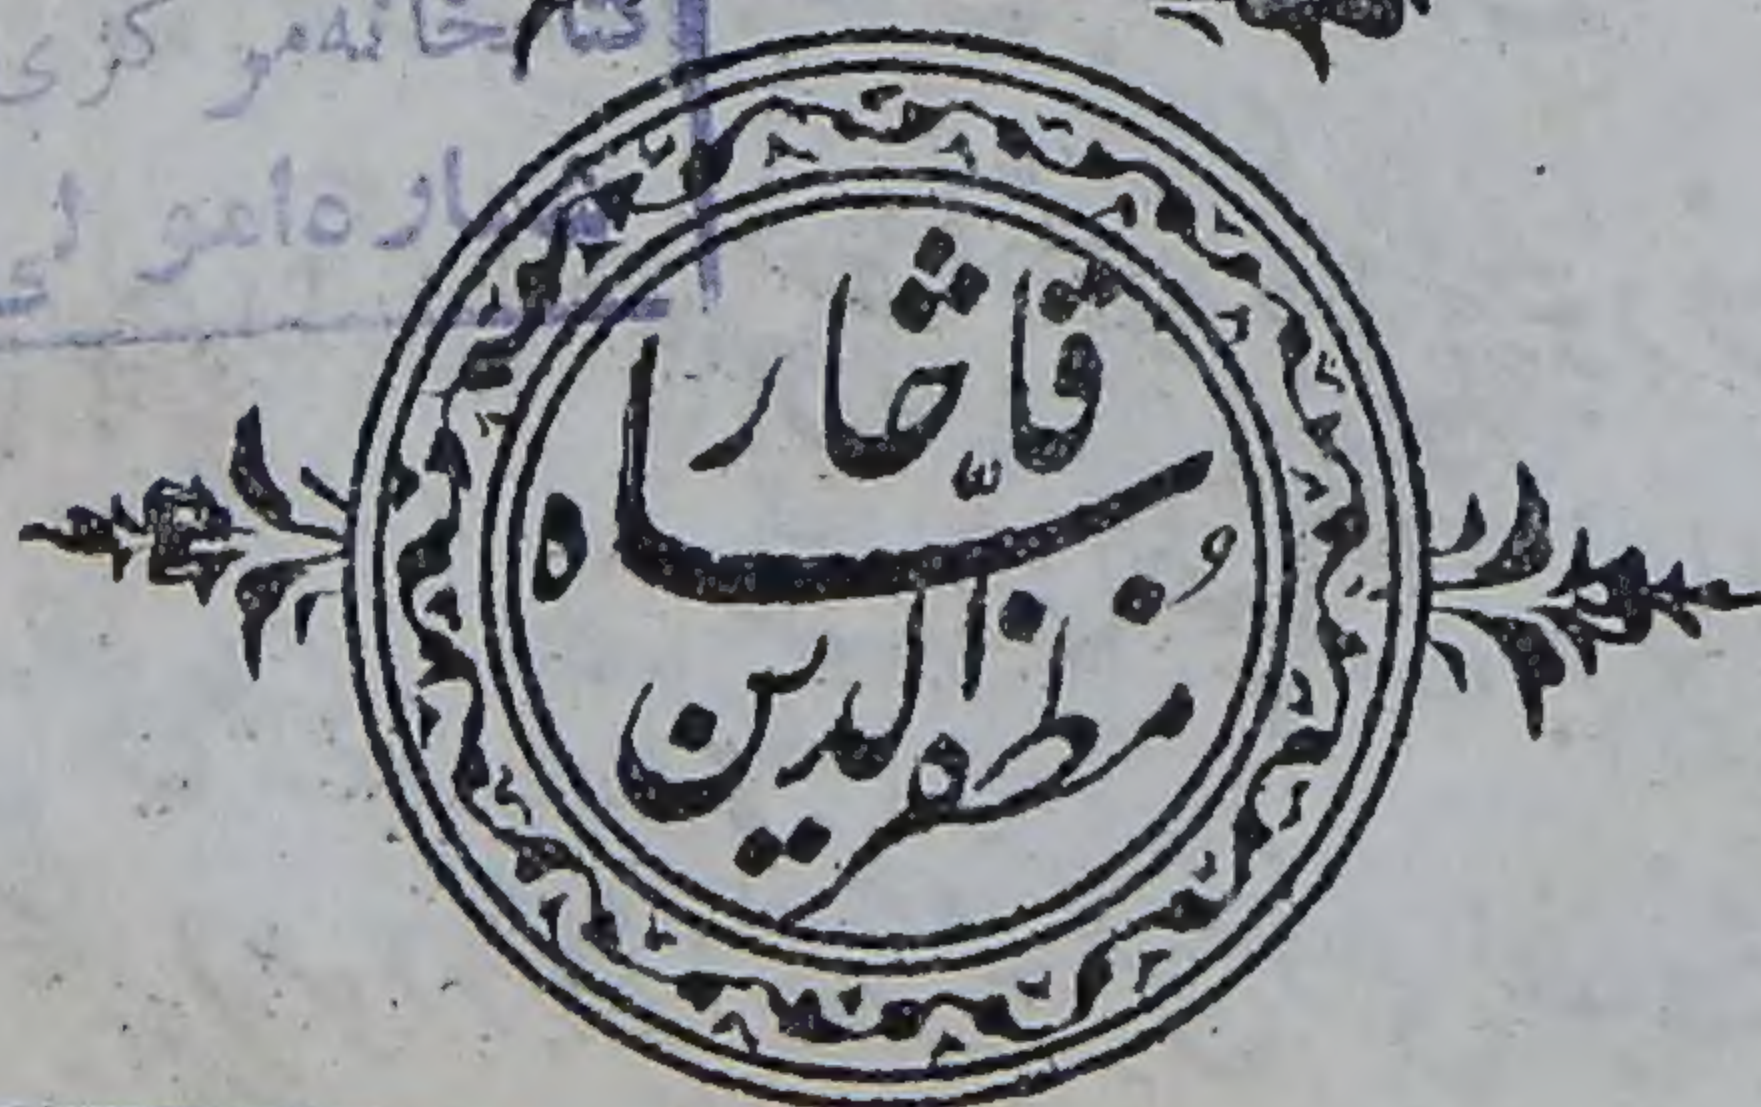 کتابخانه مرکزی
شماره
مظفرالدین
شاه
قاجار